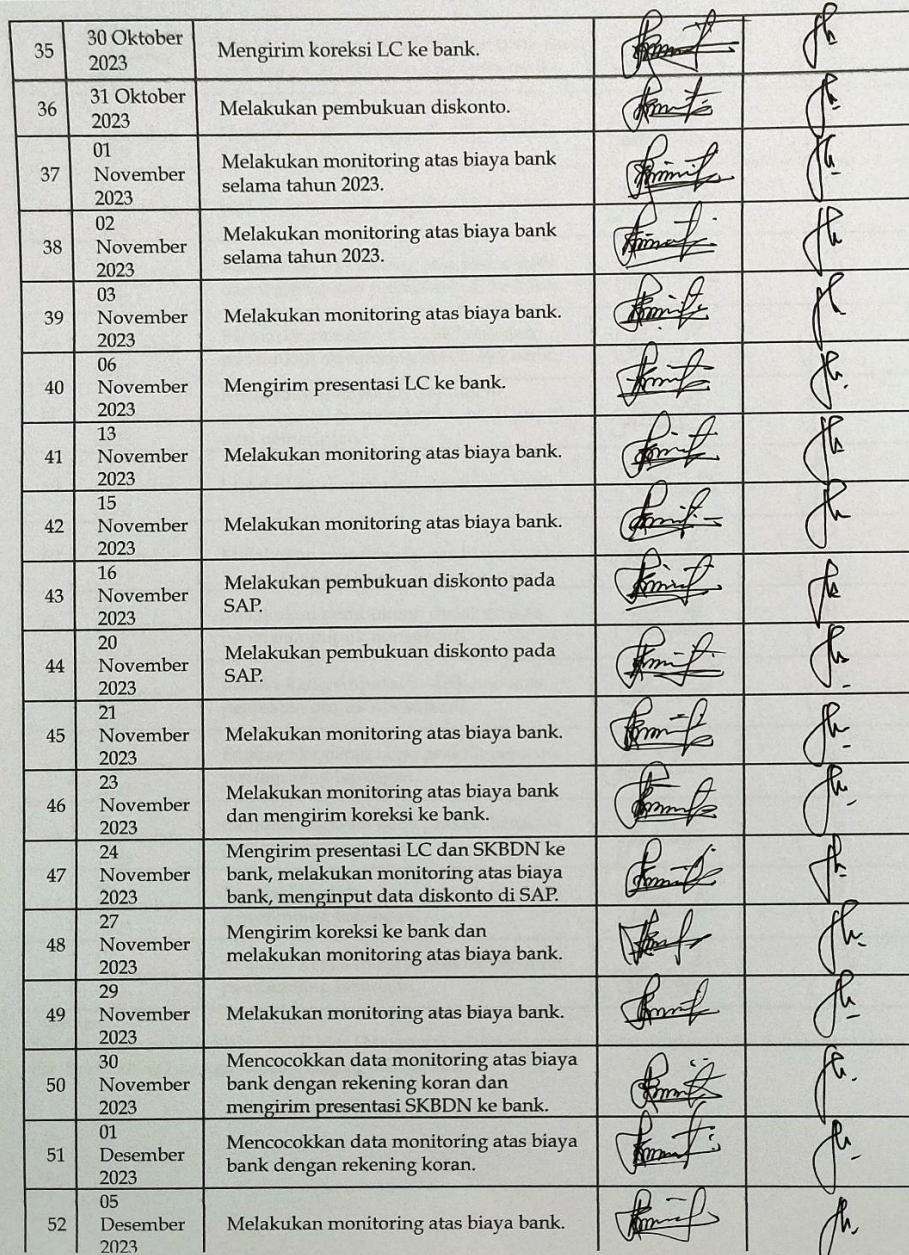 35
30 Oktober
2023
Mengirim koreksi LC ke bank.
36
31 Oktober
2023
Melakukan pembukuan diskonto.
37
01
November
2023
Melakukan monitoring atas biaya bank
selama tahun 2023.
38
02
November
2023
Melakukan monitoring atas biaya bank
selama tahun 2023.
39
03
November
2023
Melakukan monitoring atas biaya bank.
40
06
November
2023
Mengirim presentasi LC ke bank.
41
13
November
2023
Melakukan monitoring atas biaya bank.
42
15
November
2023
Melakukan monitoring atas biaya bank.
43
16
November
2023
Melakukan pembukuan diskonto pada
SAP.
44
20
November
2023
Melakukan pembukuan diskonto pada
SAP.
45
21
November
2023
Melakukan monitoring atas biaya bank.
46
23
November
2023
Melakukan monitoring atas biaya bank
dan mengirim koreksi ke bank.
47
24
November
2023
Mengirim presentasi LC dan SKBDN ke
bank, melakukan monitoring atas biaya
bank, menginput data diskonto di SAP.
48
27
November
2023
Mengirim koreksi ke bank dan
melakukan monitoring atas biaya bank.
49
29
November
2023
Melakukan monitoring atas biaya bank.
50
30
November
2023
Mencocokkan data monitoring atas biaya
bank dengan rekening koran dan
mengirim presentasi SKBDN ke bank.
51
01
Desember
2023
Mencocokkan data monitoring atas biaya
bank dengan rekening koran.
52
05
Desember
2023
Melakukan monitoring atas biaya bank.